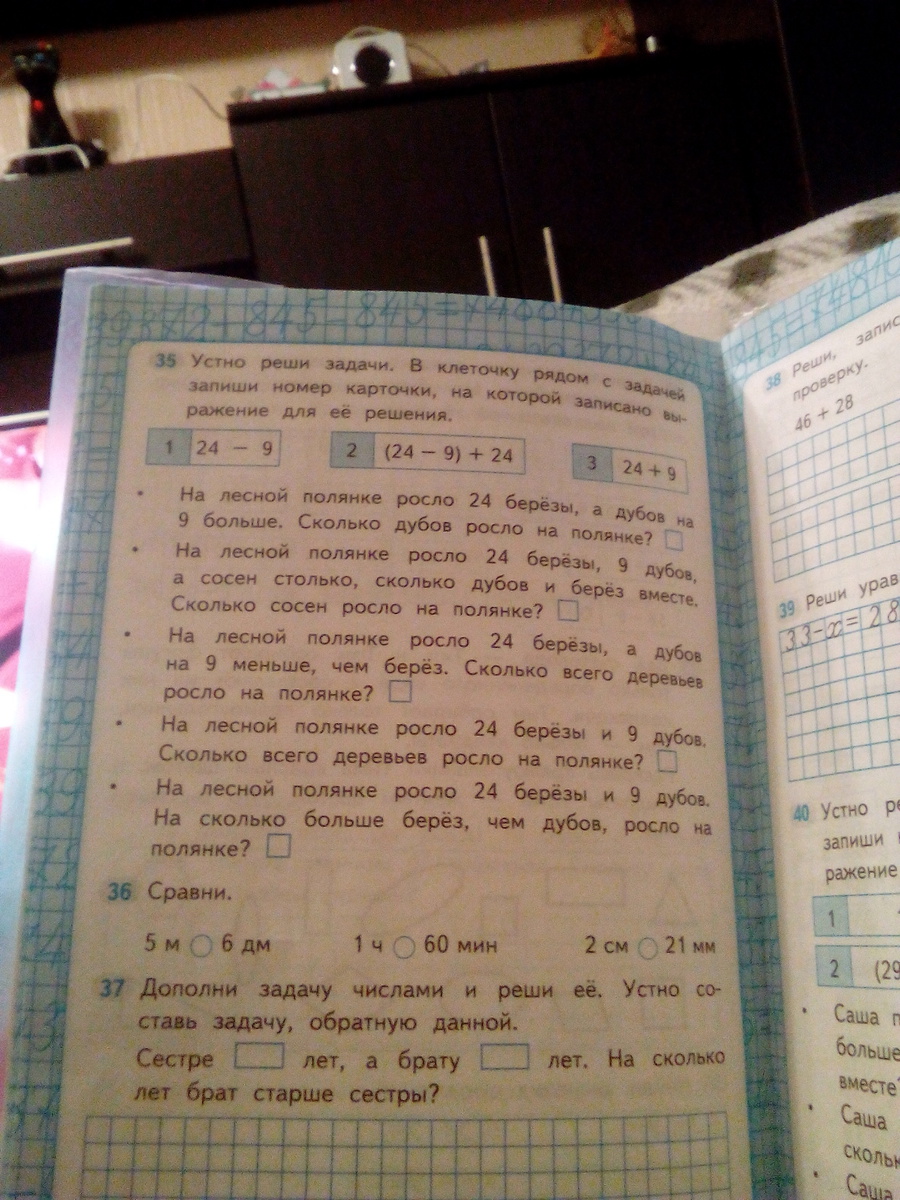 35 Устно реши задачи. В клеточку рядом с задачей
запиши номер карточки, на которой записано вы-
ражение для её решения.
1 24 − 9
2 (24 − 9) + 24
3 24 + 9
• На лесной полянке росло 24 берёзы, а дубов на
9 больше. Сколько дубов росло на полянке?
• На лесной полянке росло 24 берёзы, 9 дубов,
а сосен столько, сколько дубов и берёз вместе.
Сколько сосен росло на полянке?
• На лесной полянке росло 24 берёзы, а дубов
на 9 меньше, чем берёз. Сколько всего деревьев
росло на полянке?
• На лесной полянке росло 24 берёзы и 9 дубов.
Сколько всего деревьев росло на полянке?
• На лесной полянке росло 24 берёзы и 9 дубов.
На сколько больше берёз, чем дубов, росло на
полянке?
36 Сравни.
5 м 6 дм 1 ч 60 мин 2 см 21 мм
37 Дополни задачу числами и реши её. Устно со-
ставь задачу, обратную данной.
Сестре лет, а брату лет. На сколько
лет брат старше сестры?
38 Реши,
проверку.
46 + 28
39 Реши
33-x= 28
40 Устно
запиши
ражение
1
2 (29
• Саша
больше
вместе?
• Саша
• Саша